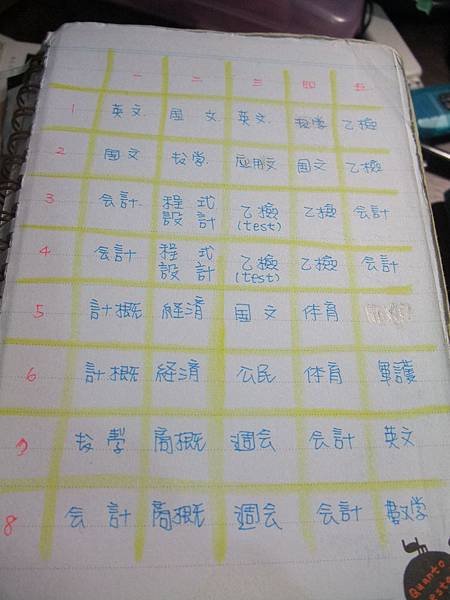 一 二 三 四 五
1 英文 国文 英文 数学 乙檢
2 国文 数学 应用文 国文 乙檢
3 会計 程式設計 乙檢(test) 乙檢 会計
4 会計 程式設計 乙檢(test) 乙檢 会計
5 計概 経済 国文 体育
6 計概 経済 公民 体育 軍護
7 数學 商概 週会 会計 英文
8 会計 商概 週会 会計 數学
Quanto
este